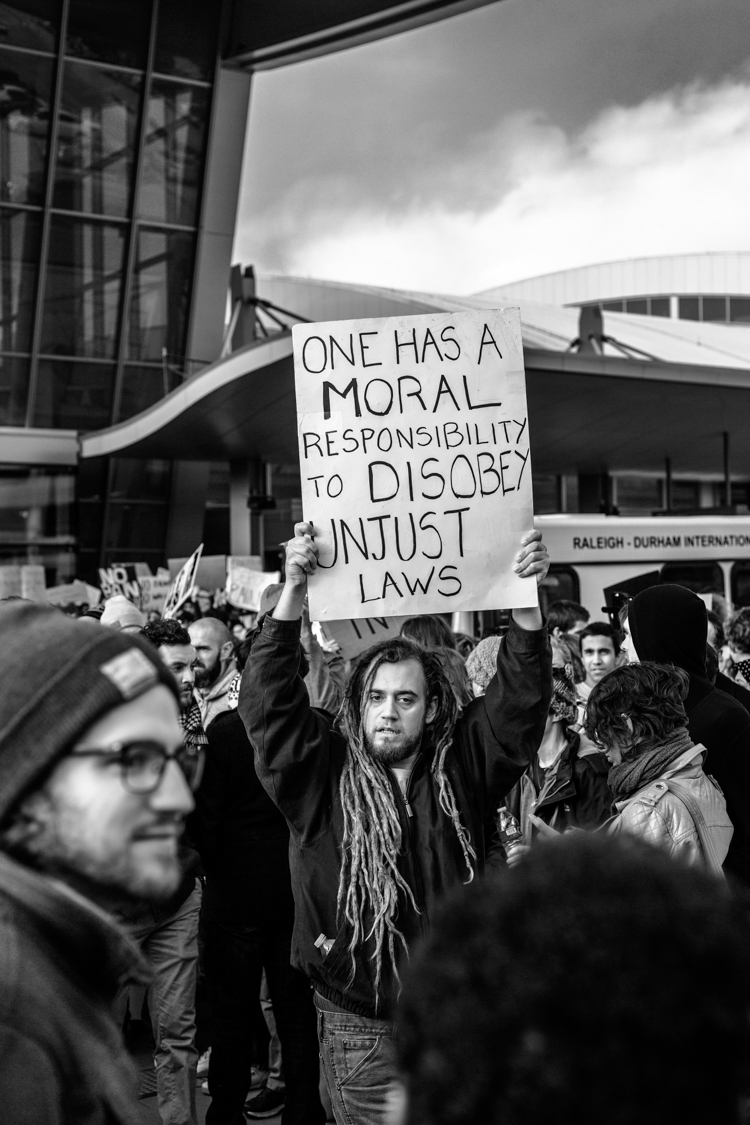 ONE HAS A
MORAL
RESPONSIBILITY
TO DISOBEY
UNJUST
LAWS
RALEIGH - DURHAM INTERNATION
NO